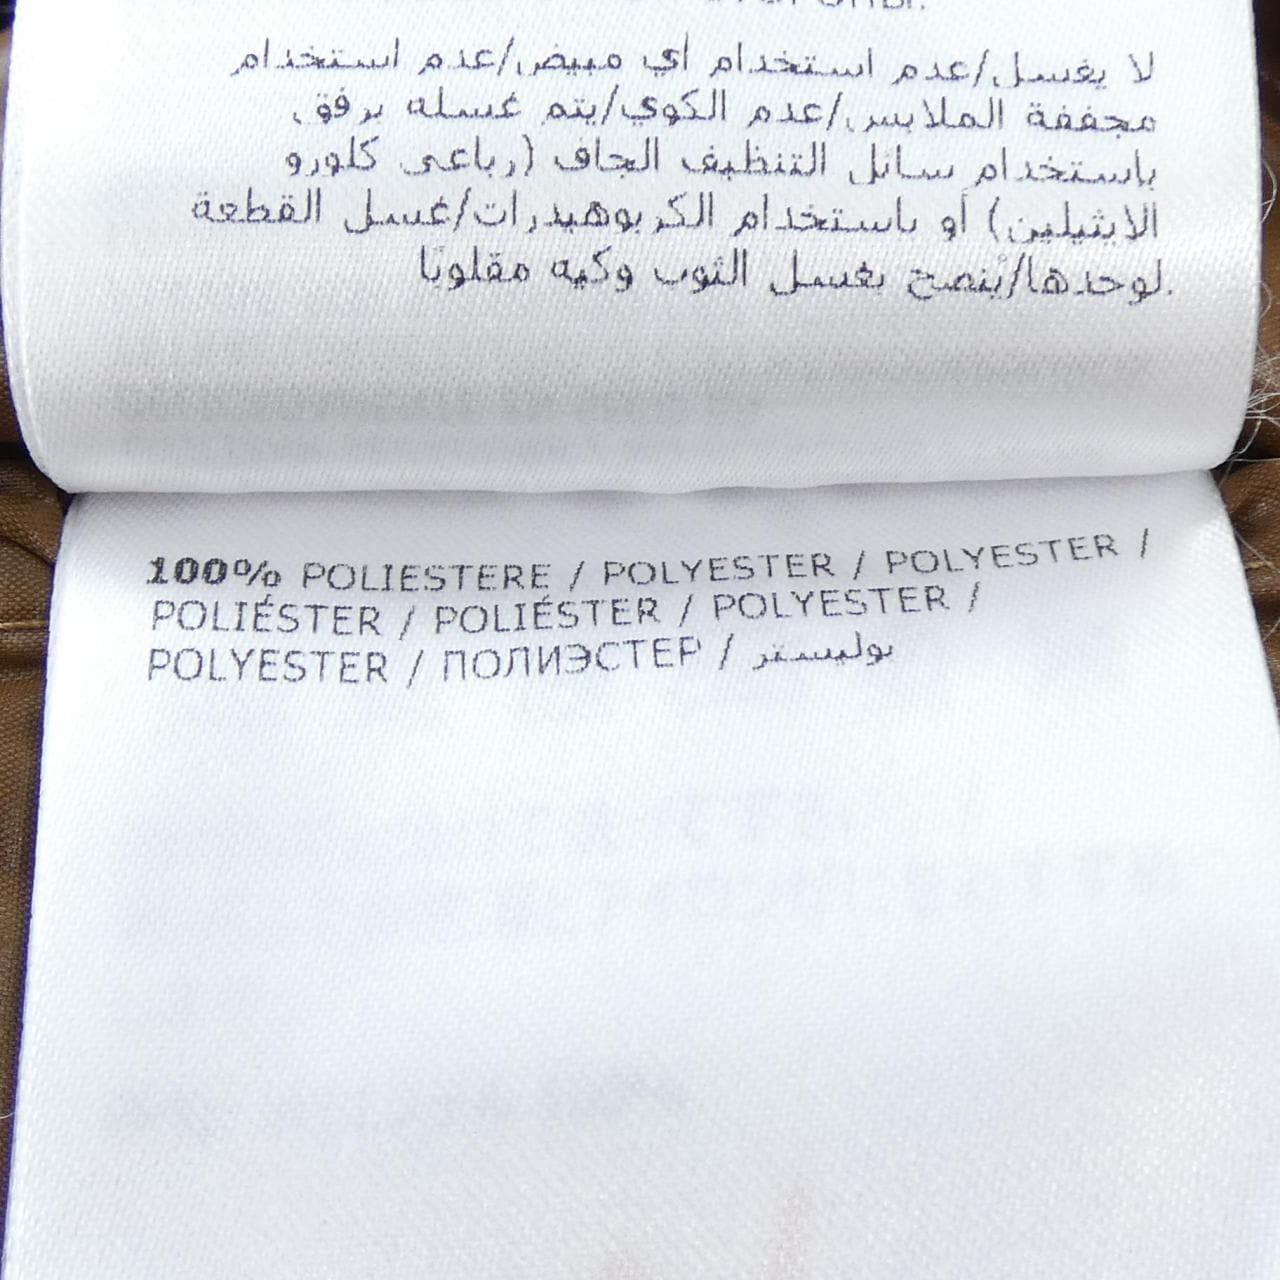 لا يغسل/عدم استخدام أي مبيض/عدم استخدام
مجففة الملابس/عدم الكوي/يتم غسله برفق
باستخدام سائل التنظيف الجاف (رباعى كلورو
الايثيلين) أو باستخدام الكربوهيدرات/غسل القطعة
لوحدها/يُنصح بغسل الثوب وكيه مقلوبًا.
100% POLIESTERE / POLYESTER / POLYESTER /
POLIÉSTER / POLIÉSTER / POLYESTER /
POLYESTER / ПОЛИЭСТЕР / بوليستر